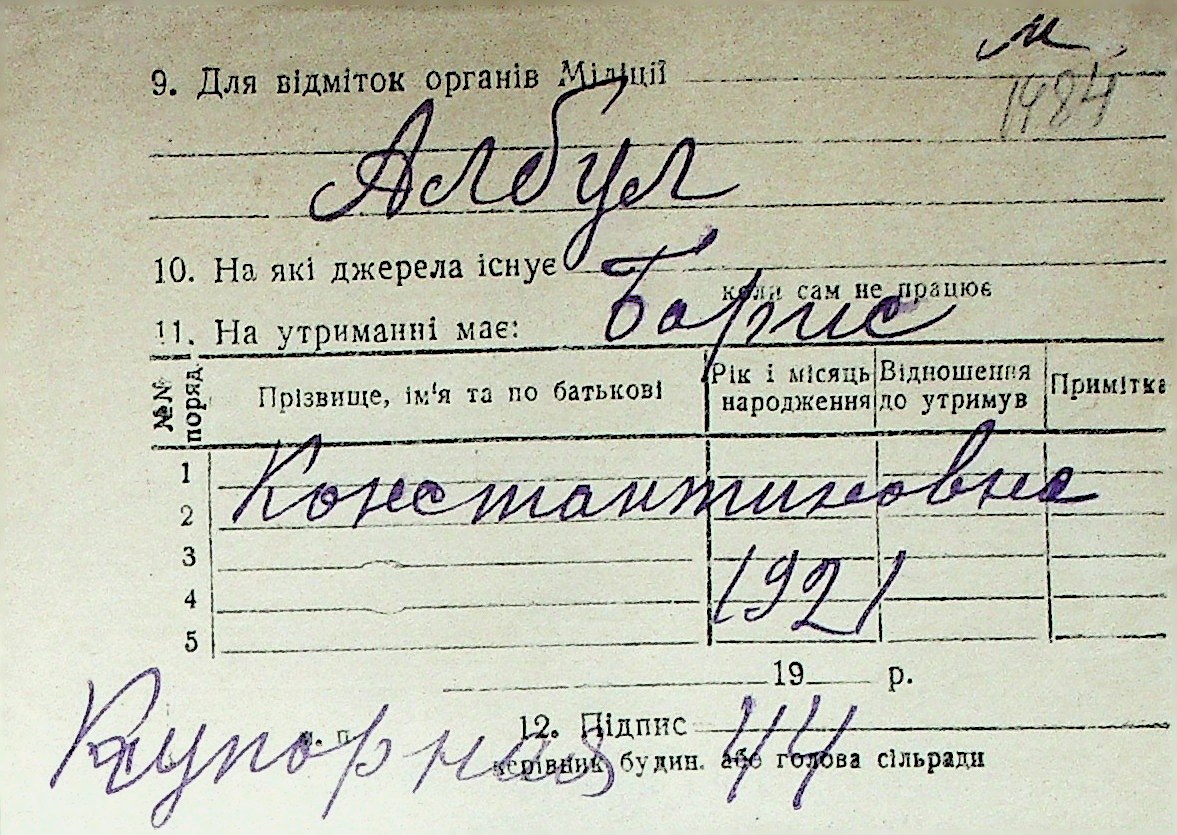 м
9. Для відміток органів Міліції
1984
Албул
10. На які джерела існує
коли сам не працює
Борис
11. На утриманні має:
№№ поряд. Прізвище, ім'я та по батькові Рік і місяць народження Відношення до утримув Примітка
1
Константиновна
2
3
4 1921
5
19 р.
12. Підпис
Купорная 44
керівник будин. або голова сільради